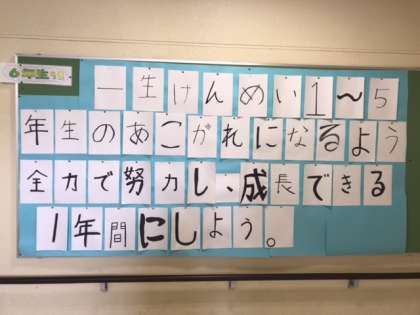 6年生
一生けんめい1〜5
年生のあこがれになるよう
全力で努力し、成長できる
1年間にしよう。